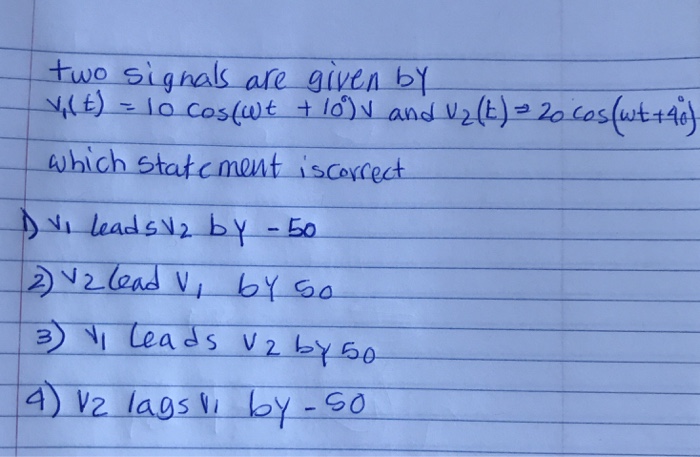 two signals are given by
V1(t) = 10 cos(wt + 10°)V and V2(t) = 20 cos(wt+40°)
which statement iscorrect
1) V1 leads V2 by - 50
2) V2 lead V1 by 50
3) V1 leads V2 by 50
4) V2 lags V1 by - 50